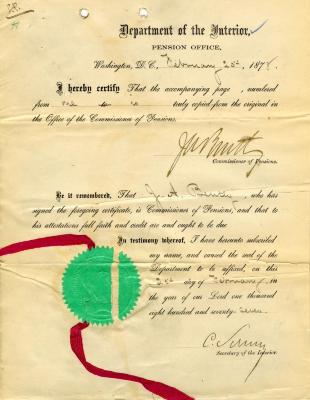 28.
Department of the Interior,
PENSION OFFICE,
Washington, D. C., February 23d, 1878.
I hereby certify That the accompanying page , numbered
from one to truly copied from the original in
the Office of the Commissioner of Pensions.
J A Bently
Commissioner of Pensions.
Be it remembered, That J. A. Bently, who has
signed the foregoing certificate, is Commissioner of Pensions, and that to
his attestations full faith and credit are and ought to be due.
In testimony whereof, I have hereunto subscribed
my name, and caused the seal of the
Department to be affixed, on this
day of February in
the year of our Lord one thousand
eight hundred and seventy-
C. Schurz
Secretary of the Interior.